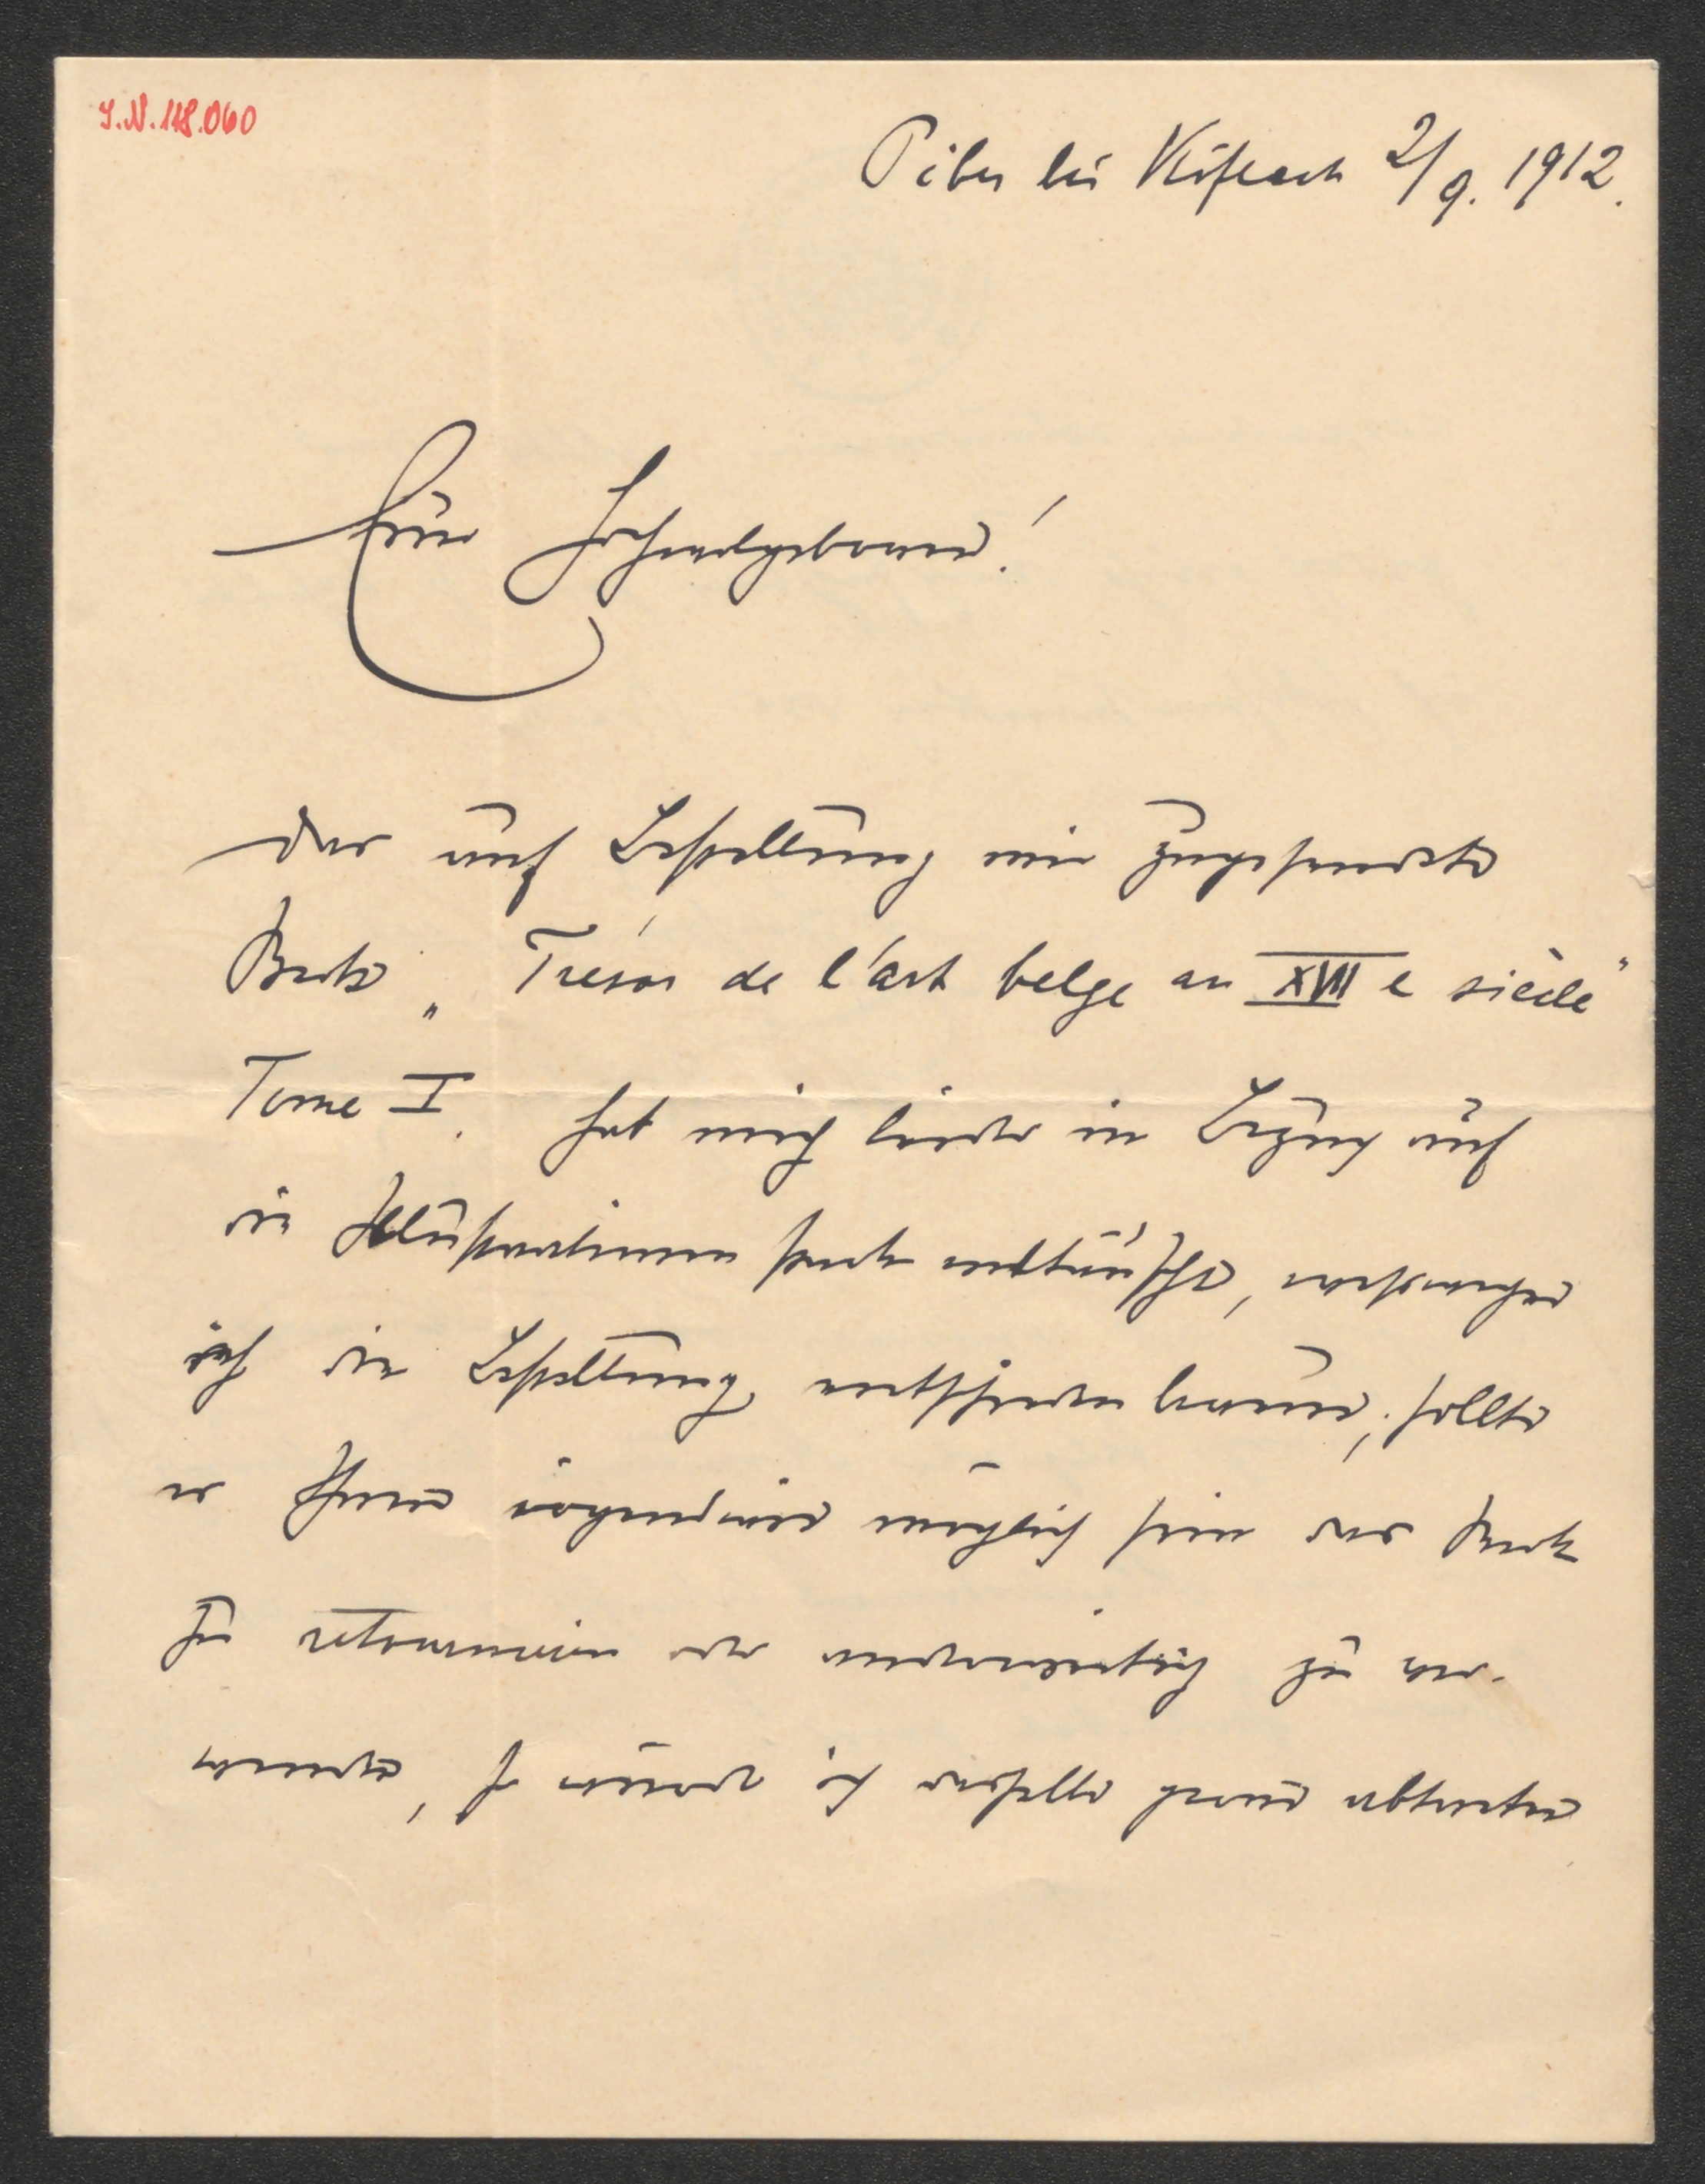 I.N. 118.060
Piber bei Köflach 2/9. 1912.
Euer Hochwohlgeboren!
Das auf Bestellung mir zugesendete
Werk „Trésor de l'art belge au XVII e siècle"
Tome I. hat mich leider in Bezug auf
die Illustrationen stark enttäuscht,
ich die Bestellung entschieden bereue; sollte
es Ihnen irgendwie möglich sein das Werk
zu retournieren oder anderweitig zu ver-
wenden, so würde ich dasselbe gerne abtreten